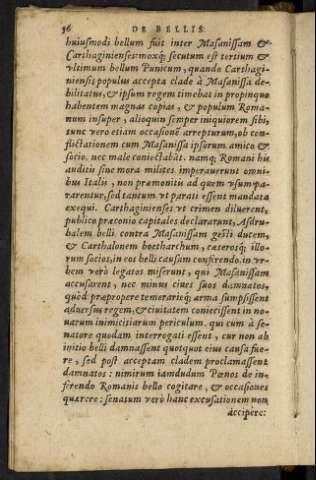 56 DE BELLIS
huiusmodi bellum fuit inter Masanissam &
Carthaginienses: moxq́; secutum est tertium &
vltimum bellum Punicum, quando Carthagi-
niensis populus accepta clade à Masanissa de-
bilitatus, & ipsum regem timebat in propinquo
habentem magnas copias, & populum Roma-
num insuper, alioquin semper iniquiorem sibi,
tunc vero etiam occasionē arrepturum, ob con-
flictationem cum Masanissa ipsorum amico &
socio. nec male coniectabāt. namq; Romani his
auditis sine mora milites imperauerunt omni-
bus Italis, non præmonitis ad quem vsum pa-
rarentur, sed tantum vt parati essent mandata
exequi. Carthaginienses vt crimen diluerent,
publico præconio capitales declararunt, Asdru-
balem belli contra Masanissam gesti ducem,
& Carthalonem boetharchum, cæterosq; illo-
rum socios, in eos belli causam conferendo. in vr-
bem verò legatos miserunt, qui Masanissam
accusarent, nec minus ciues suos damnatos,
quòd præpropere temerariéq; arma sumpsissent
aduersus regem, & ciuitatem coniecissent in no-
uarum inimicitiarum periculum. qui cum à se-
natore quodam interrogati essent, cur non ab
initio belli damnassent quotquot eius causa fue-
re, sed post acceptam cladem proclamassent
damnatos: nimirum iamdudum Pœnos de in-
ferendo Romanis bello cogitare, & occasiones
quærere: senatum verò hanc excusationem non
accipere: